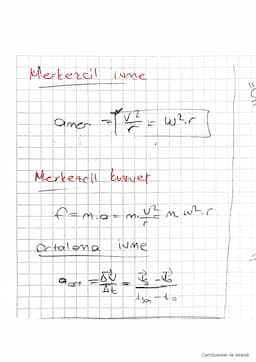 Merkezcil ivme
amer = v²/r = w².r
Merkezcil kuvvet
f = m.a = m.v²/r = m w².r
Ortalama ivme
aort = Δv/Δt = vs - v0 / tson - t0
CamScanner ile tarandı